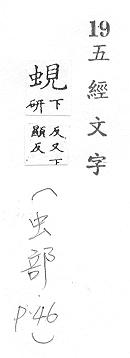 19五經文字
蜆下研 反又下顯反
(虫部 P.46)